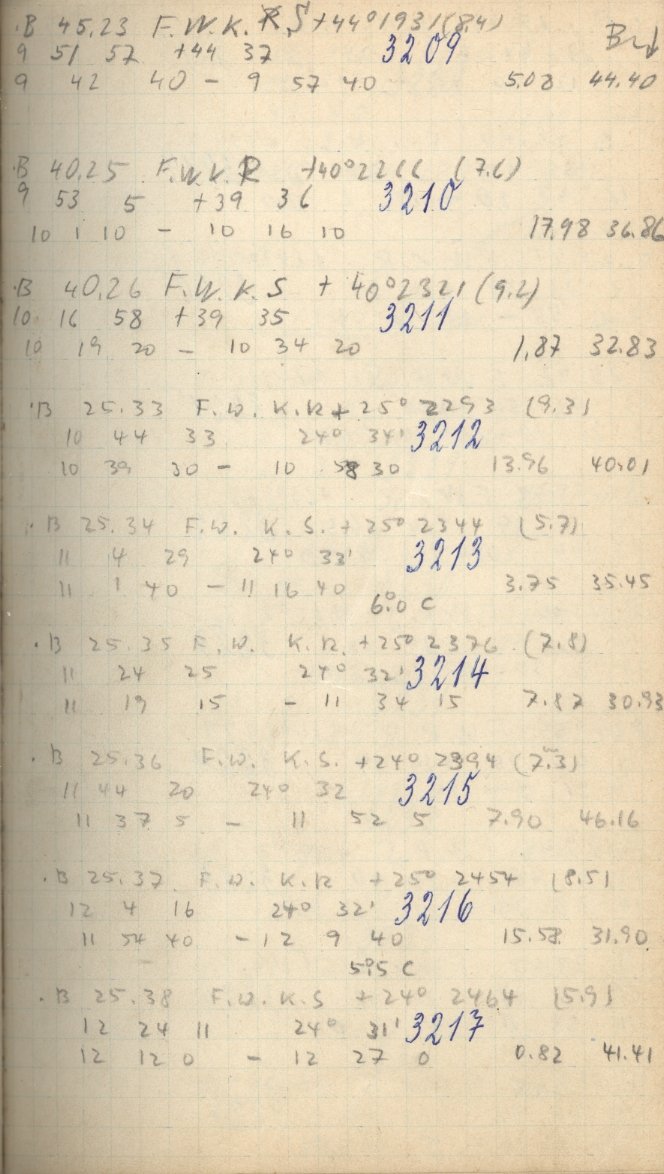 ·B 45.23 F.W.K. S +44° 1931 (8.4)
9 51 57 +44 37 3209
9 42 40 - 9 57 40 5.08 44.40
·B 40.25 F.W.K.R +40° 2266 (7.6)
9 53 5 +39 36 3210
10 1 10 - 10 16 10 17.98 36.86
·B 40.26 F.W.K.S +40° 2321 (9.2)
10 16 58 +39 35 3211
10 19 20 - 10 34 20 1.87 32.83
·B 25.33 F.W.K.R + 25° 2293 (9.3)
10 44 33 24° 34' 3212
10 39 30 - 10 30 13.96 40.01
·B 25.34 F.W. K.S. + 25° 2344 (5.7)
11 4 29 24° 33' 3213
11 1 40 - 11 16 40 3.75 35.45
6°.0 C
·B 25.35 F.W. K.R. +25° 2376 (7.8)
11 24 25 24° 32' 3214
11 19 15 - 11 34 15 7.87 30.93
·B 25.36 F.W. K.S. +24° 2394 (7.3)
11 44 20 24° 32 3215
11 37 5 - 11 52 5 7.90 46.16
·B 25.37 F.W. K.R +25° 2454 (8.5)
12 4 16 24° 32' 3216
11 54 40 - 12 9 40 15.58 31.90
5°.5 C
·B 25.38 F.W.K.S +24° 2464 (5.9)
12 24 11 24° 31' 3217
12 12 0 - 12 27 0 0.82 41.41